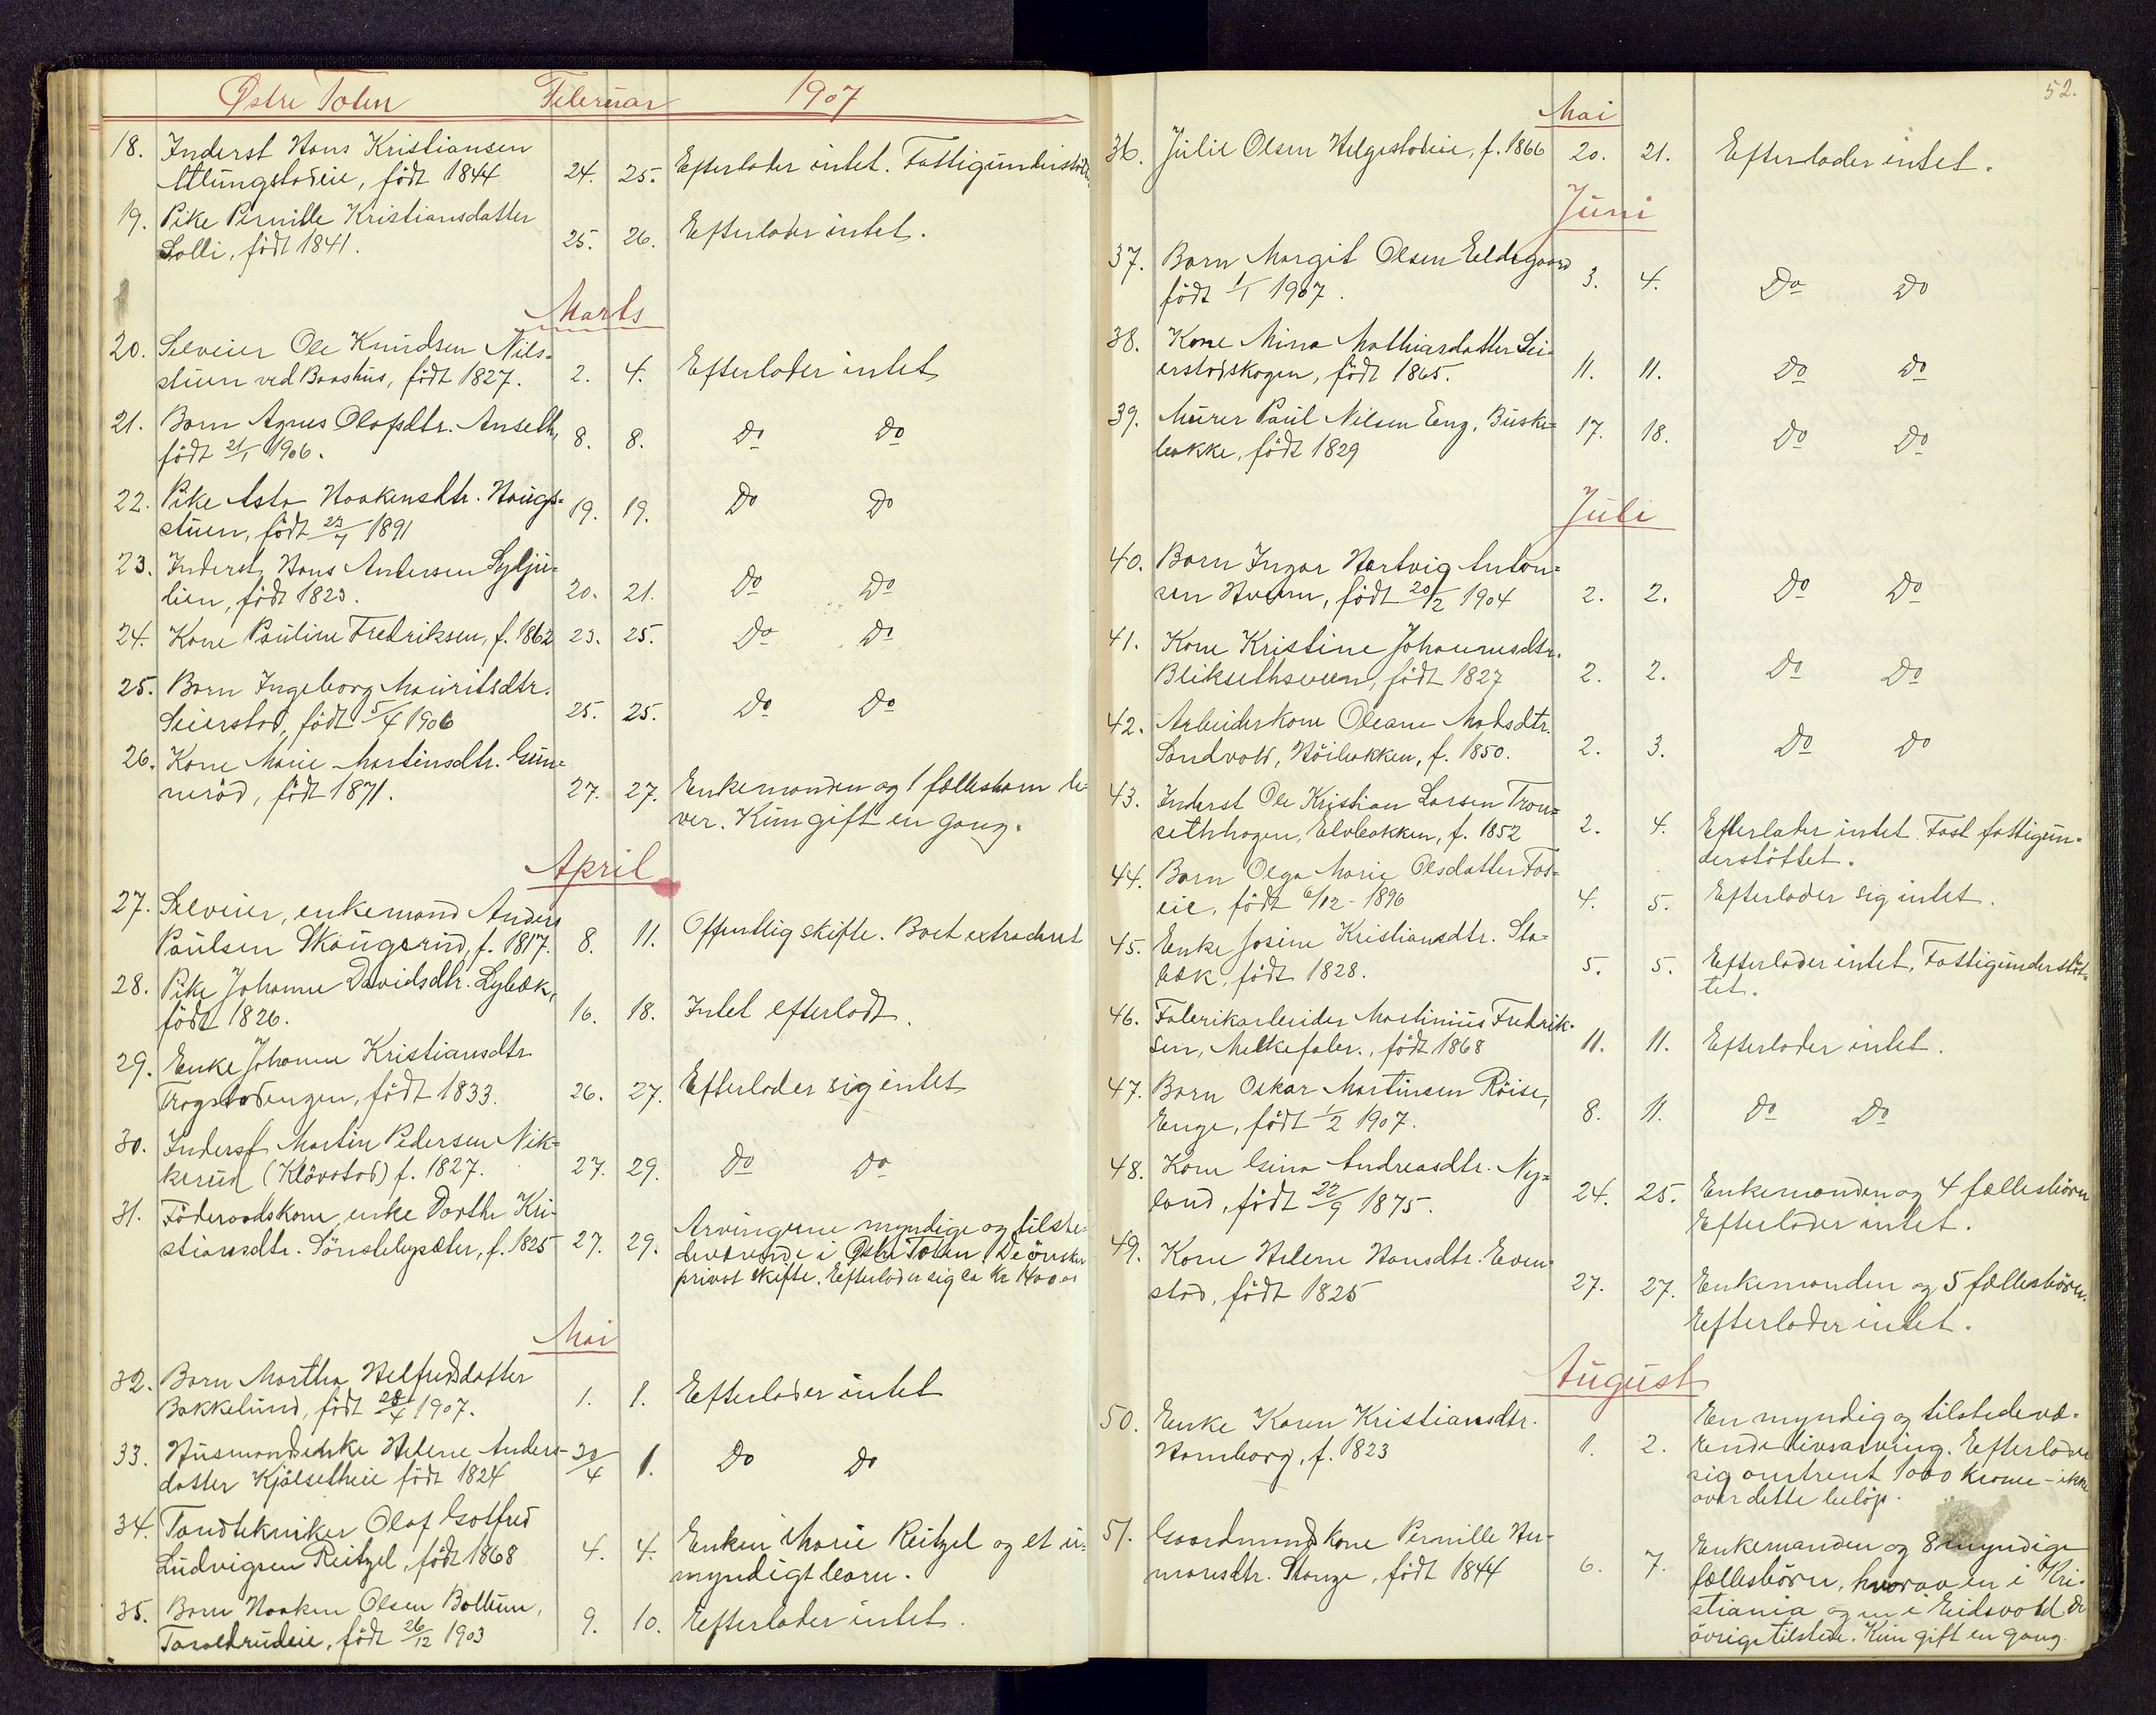 Østre Toten Februar 1907
18. Inderst Hans Kristiansen
Alungstadeie, født 1844 24. 25. Efterlader intet. Fattigunderstöttet
19. Pike Pernille Kristiansdatter
Solli, født 1841. 25. 26. Efterlader intet.
Marts
20. Selveier Ole Knudsen Nils-
stuen ved Baashus, födt 1827. 2. 4. Efterlader intet
21. Barn Agnes Olafsdtr. Anseth,
födt 21/1 1906. 8. 8. Do Do
22. Pike Asta Haakensdtr. Haugs-
stuen, födt 23/7 1891 19. 19. Do Do
23. Inderst Hans Andersen Sylju-
lien, födt 1823. 20. 21. Do Do
24. Kone Pauline Fredriksen, f. 1862 23. 25. Do Do
25. Barn Ingeborg Mauritsdtr.
Seierstad, födt 5/4 1906 25. 25. Do Do
26. Kone Marie Martinsdtr. Gun-
neröd, födt 1871. 27. 27. Enkemanden og 1 fællesbarn le-
ver. Kun gift en gang.
April
27. Selveier, enkemand Anders
Paulsen Skaugerud, f. 1817. 8. 11. Offentlig skifte. Boet extraderet
28. Pike Johanne Davidsdtr. Lybæk,
födt 1826. 16. 18. Intet efterladt.
29. Enke Johanne Kristiansdtr
Trogstadengen, födt 1833. 26. 27. Efterlader sig intet
30. Inderst Martin Pedersen Nik-
kerud (Klövstad) f. 1827. 27. 29. Do Do
31. Föderaadskone, enke Dorthe Kri-
stiansdtr. Sönstebysæter, f. 1825 27. 29. Arvingerne myndige og tilste-
deværende i Østre Toten. De önsker
privat skifte. Efterlader sig ca Kr 1400.00
Mai
32. Barn Martha Helfredsdatter
Bakkelund, födt 28/4 1907. 1. 1. Efterlader intet
33. Husmandsenke Helene Anders-
datter Kjölsetheie födt 1824 30/4 1. Do Do
34. Tandtekniker Olaf Gotfred
Ludvigsen Reitzel, födt 1868 4. 4. Enken Marie Reitzel og et u-
myndigt barn.
35. Barn Haaken Olsen Bollum,
Taraldrudeie, födt 26/12 1903 9. 10. Efterlader intet.
52.
Mai
36. Julie Olsen Helgestadeie, f. 1866 20. 21. Efterlader intet.
Juni
37. Barn Margit Olsen Eeldegaard
födt 1/1 1907. 3. 4. Do Do
38. Kone Mina Mathiasdatter Sei-
erstadskogen, födt 1865. 11. 11. Do Do
39. Murer Paul Nilsen Eng, Buske-
bakke, födt 1829 17. 18. Do Do
Juli
40. Barn Ingar Hartvig Anton-
sen Hveem, födt 20/2 1904 2. 2. Do Do
41. Kone Kristine Johannesdtr.
Bliksethsveen, födt 1827 2. 2. Do Do
42. Arbeiderkone Oleane Madsdtr.
Sandvold, Höibakken, f. 1850. 2. 3. Do Do
43. Inderst Ole Kristian Larsen Tron-
sethhagen, Elvbakken, f. 1852 2. 4. Efterlater intet. Fast fattigun-
derstöttet.
44. Barn Olga Marie Olsdatter Fos-
eie, födt 6/12 - 1896 4. 5. Efterlader sig intet.
45. Enke Josine Kristiansdtr. Sta-
bæk, födt 1828. 5. 5. Efterlader intet, Fattigunderstöt-
tet.
46. Fabrikarbeider Martinius Fredrik-
sen, Melkefabr., födt 1868 11. 11. Efterlader intet.
47. Barn Oskar Martinsen Röise,
Enge, födt 1/2 1907. 8. 11. Do Do
48. Kone Gina Andreasdtr. Ny-
land, födt 22/9 1875. 24. 25. Enkemanden og 4 fællesbörn
Efterlader intet.
49. Kone Helene Hansdtr. Even-
stad, födt 1825 27. 27. Enkemanden og 5 fællesbörn.
Efterlader intet.
August
50. Enke Karen Kristiansdtr.
Hamborg, f. 1823 1. 2. En myndig og tilstedevæ-
rende livsarving. Efterlader
sig omtrent 1000 kroner - ikke
over dette belöp.
51. Gaardmandskone Pernille Her-
mansdtr. Stange, födt 1844 6. 7. Enkemanden og 8 myndige
fællesbörn, hvorav en i Kri-
stiania og en i Eidsvold de
övrige tilstede. Kun gift en gang